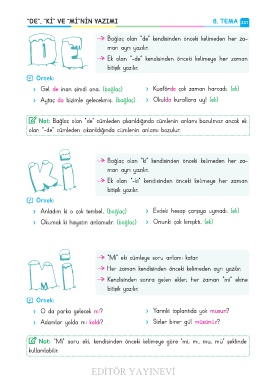 "DE", "Kİ" VE "Mİ"NİN YAZIMI
8. TEMA 231
DE
Bağlaç olan "de" kendisinden önceki kelimeden her za-
man ayrı yazılır.
Ek olan "-de" kendisinden önceki kelimeye her zaman
bitişik yazılır.
Örnek:
Gel de inan şimdi ona. (bağlaç)
Kuaförde çok zaman harcadı. (ek)
Aytaç da bizimle gelecekmiş. (bağlaç)
Okulda kurallara uy! (ek)
Not: Bağlaç olan "de" cümleden çıkarıldığında cümlenin anlamı bozulmaz ancak ek
olan "-de" cümleden çıkarıldığında cümlenin anlamı bozulur.
Kİ
Bağlaç olan "ki" kendisinden önceki kelimeden her za-
man ayrı yazılır.
Ek olan "-ki" kendisinden önceki kelimeye her zaman
bitişik yazılır.
Örnek:
Anladım ki o çok tembel. (bağlaç)
Evdeki hesap çarşıya uymadı. (ek)
Okumak ki hayatın anlamıdır. (bağlaç)
Onunki çok karışıktı. (ek)
Mi
"Mi" eki cümleye soru anlamı katar.
Her zaman kendisinden önceki kelimeden ayrı yazılır.
Kendisinden sonra gelen ekler, her zaman "mi" ekine
bitişik yazılır.
Örnek:
O da parka gelecek mi?
Yarınki toplantıda yok musun?
Adamlar yolda mı kaldı?
Sizler birer gül müsünüz?
Not: "Mi" soru eki, kendisinden önceki kelimeye göre "mı, mi, mu, mü" şeklinde
kullanılabilir.
EDİTÖR YAYINEVİ